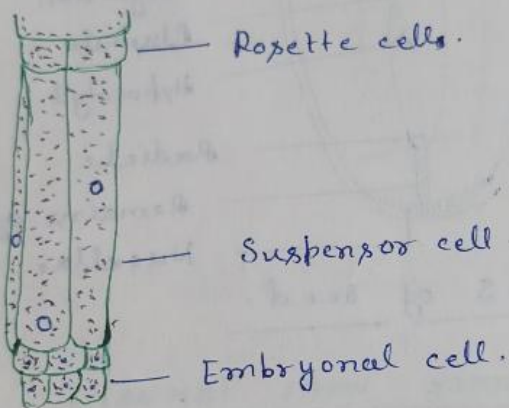 Rosette cells.
Suspensor cell
Embryonal cell.